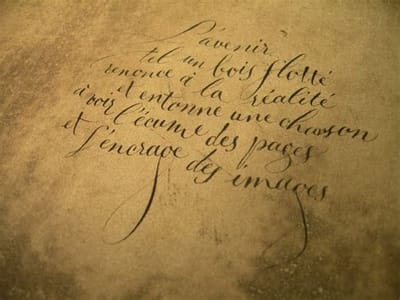 L'avenir
tel un bois flotté
renonce à la réalité
et entonne une chanson
à voir l'écume des pages
et l'encrage des images